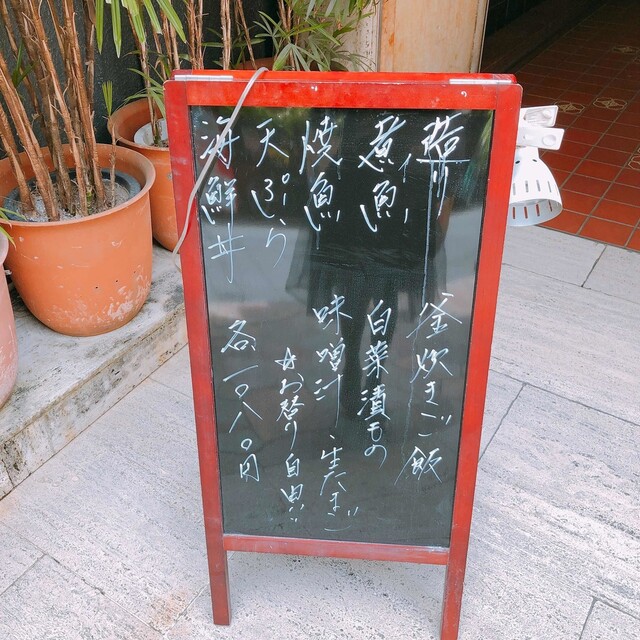 煮魚
焼魚
天ぷら
海鮮丼
釜炊きご飯
白菜漬もの
味噌汁、生たまご
☆お替り自由
各一〇八〇円